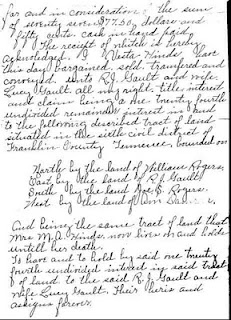 for and in consideration of the sum
of seventy seven 77.50 dollars and
fifty cents cash in hand paid
The receipt of which is hereby
acknowledged. I Vesta Hinds Have
this day bargained sold transfered and
conveyed unto R.J. Gault and wife
Lucy Gault all my right, title interest
and claim being a one twenty fourth
undivided remainder interest in and
to the following described tract of land
situated in the sixth civil district of
Franklin County Tennessee, bounded on
North by the land of William Rogers,
East by the land of R.J. Gault
South by the land Joe S. Rogers.
West by the land of
And being the same tract of land that
Mrs M.A. Hinds now lives on and holds
untill her death.
To have and to hold by said one twenty
fourth undivided interest in said tract
of land to the said R.J. Gault and
wife Lucy Gault. Their heris and
assigns forever.